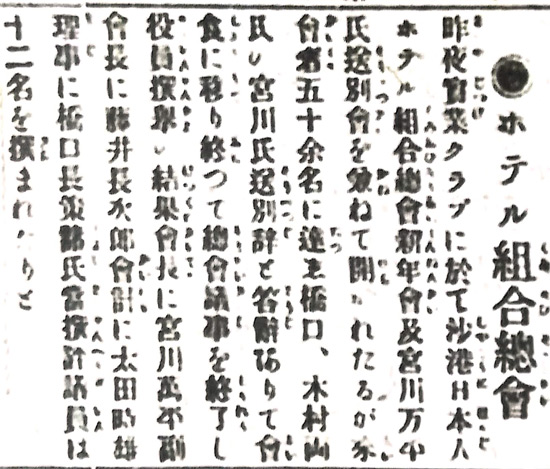 ●ホテル組合總會
昨夜實業クラブに於て沙港日本人
ホテル組合總會新年會及宮川万平
氏送別會を兼ねて開かれたるが來
會者五十余名に達し橋口、木村両
氏の宮川氏送別辞と答辭ありて會
食に移り終つて總會議事を終了し
役員撰擧の結果會長に宮川萬平副
會長に藤井長次郎會計に太田 雄
理事に橋口長策諸氏當撰評議員は
十二名を撰まれたりと